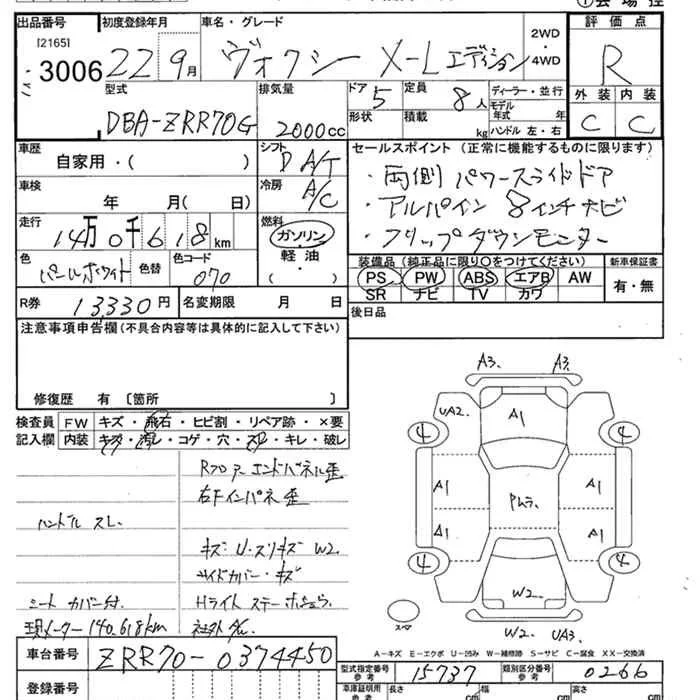 出品番号 初度登録年月 車名・グレード 2WD・4WD 評価点
[2165]
3006 22 9月 ヴォクシー X-Lエディション R
型式 排気量 ドア 定員 ディーラー・並行 外装 内装
DBA-ZRR70G 2000cc 5 8人 モデル年式 年 C C
形状 積載 kg ハンドル 左・右
車歴 シフト セールスポイント (正常に機能するものに限ります)
自家用・( ) D A/T ・両側パワースライドドア
車検 冷房 ・アルパイン8インチナビ
年 月( 日) A/C ・フリップダウンモニター
走行 燃料
14万0千618km ガソリン
軽油
・( )
色 色替 色コード
パールホワイト 070
装備品 (純正品に限り○をつけてください) 新車保証書
PS PW ABS エアB AW 有・無
SR ナビ TV カワ
R券 13,330円 名変期限 月 日
後日品
注意事項申告欄(不具合内容等は具体的に記入して下さい)
修復歴 有 〔箇所 〕
検査員 FW キズ・飛石・ヒビ割・リペア跡・×要
記入欄 内装 キズ・汚レ・コゲ・穴・スレ・キレ・破レ
Rフロアーエンドパネル歪
右Fインパネ歪
ハンドルスレ
キズ・U・スリキズ W2.
サイドカバー・キズ
シートカバー付. Hライトステー
現メーター140.618km 社外
A3. A3.
UA2. A1
4 4
A1 A1
A1 A1
4 4
W2.
スペア W2. UA3.
A-キズ E-エクボ U-凹み W-補修跡 S-サビ C-腐食 XX-交換済
車台番号 ZRR70-0374450
型式指定番号 参考 15737 類別区分番号 参考 0266
登録番号 車庫証明用 参考 長さ cm 幅 cm 高さ cm